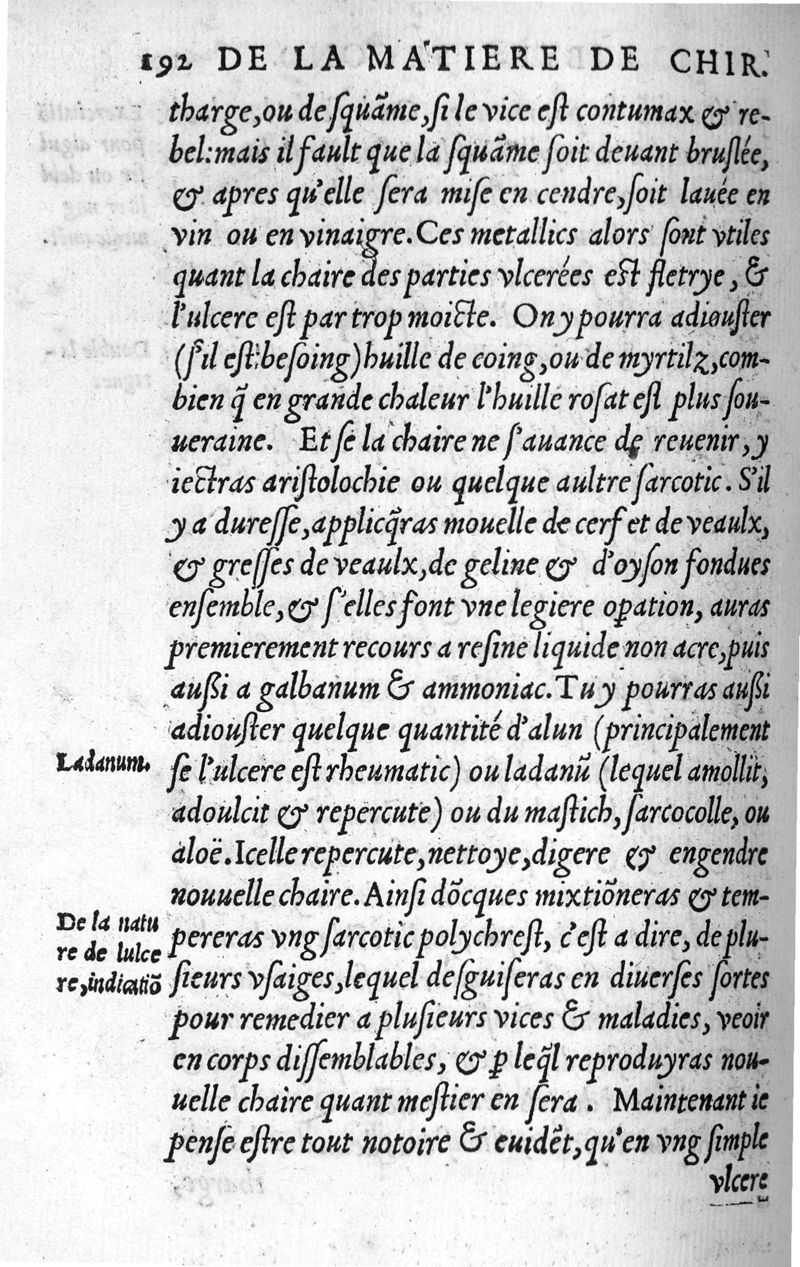 192 DE LA MATIERE DE CHIR.
tharge, ou de squãme, si le vice est contumax & re-
bel: mais il fault que la squãme soit deuant bruslée,
& apres qu'elle sera mise en cendre, soit lauée en
vin ou en vinaigre. Ces metallics alors sont vtiles
quant la chaire des parties vlcerées est fletrye, &
l'ulcere est par trop moicte. On y pourra adiouster
(s'il est besoing) huille de coing, ou de myrtilz, com-
bien q̃ en grande chaleur l'huille rosat est plus sou-
ueraine. Et se la chaire ne s'auance de reuenir, y
iectras aristolochie ou quelque aultre sarcotic. S'il
y a duresse, applicq̃ras mouelle de cerf et de veaulx,
& gresses de veaulx, de geline & d'oyson fondues
ensemble, & s'elles font vne legiere oꝑation, auras
premierement recours a resine liquide non acre, puis
aussi a galbanum & ammoniac. Tu y pourras aussi
adiouster quelque quantité d'alun (principalement
Ladanum.
se l'ulcere est rheumatic) ou ladanũ (lequel amollit,
adoulcit & repercute) ou du mastich, sarcocolle, ou
aloë. Icelle repercute, nettoye, digere & engendre
nouuelle chaire. Ainsi dõcques mixtiõneras & tem-
De la natu
re de lulce
re, indicatiõ
pereras vng sarcotic polychrest, c'est a dire, de plu-
sieurs vsaiges, lequel desguiseras en diuerses sortes
pour remedier a plusieurs vices & maladies, veoir
en corps dissemblables, & ꝑ leq̃l reproduyras nou-
uelle chaire quant mestier en sera. Maintenant ie
pense estre tout notoire & euidẽt, qu'en vng simple
vlcere